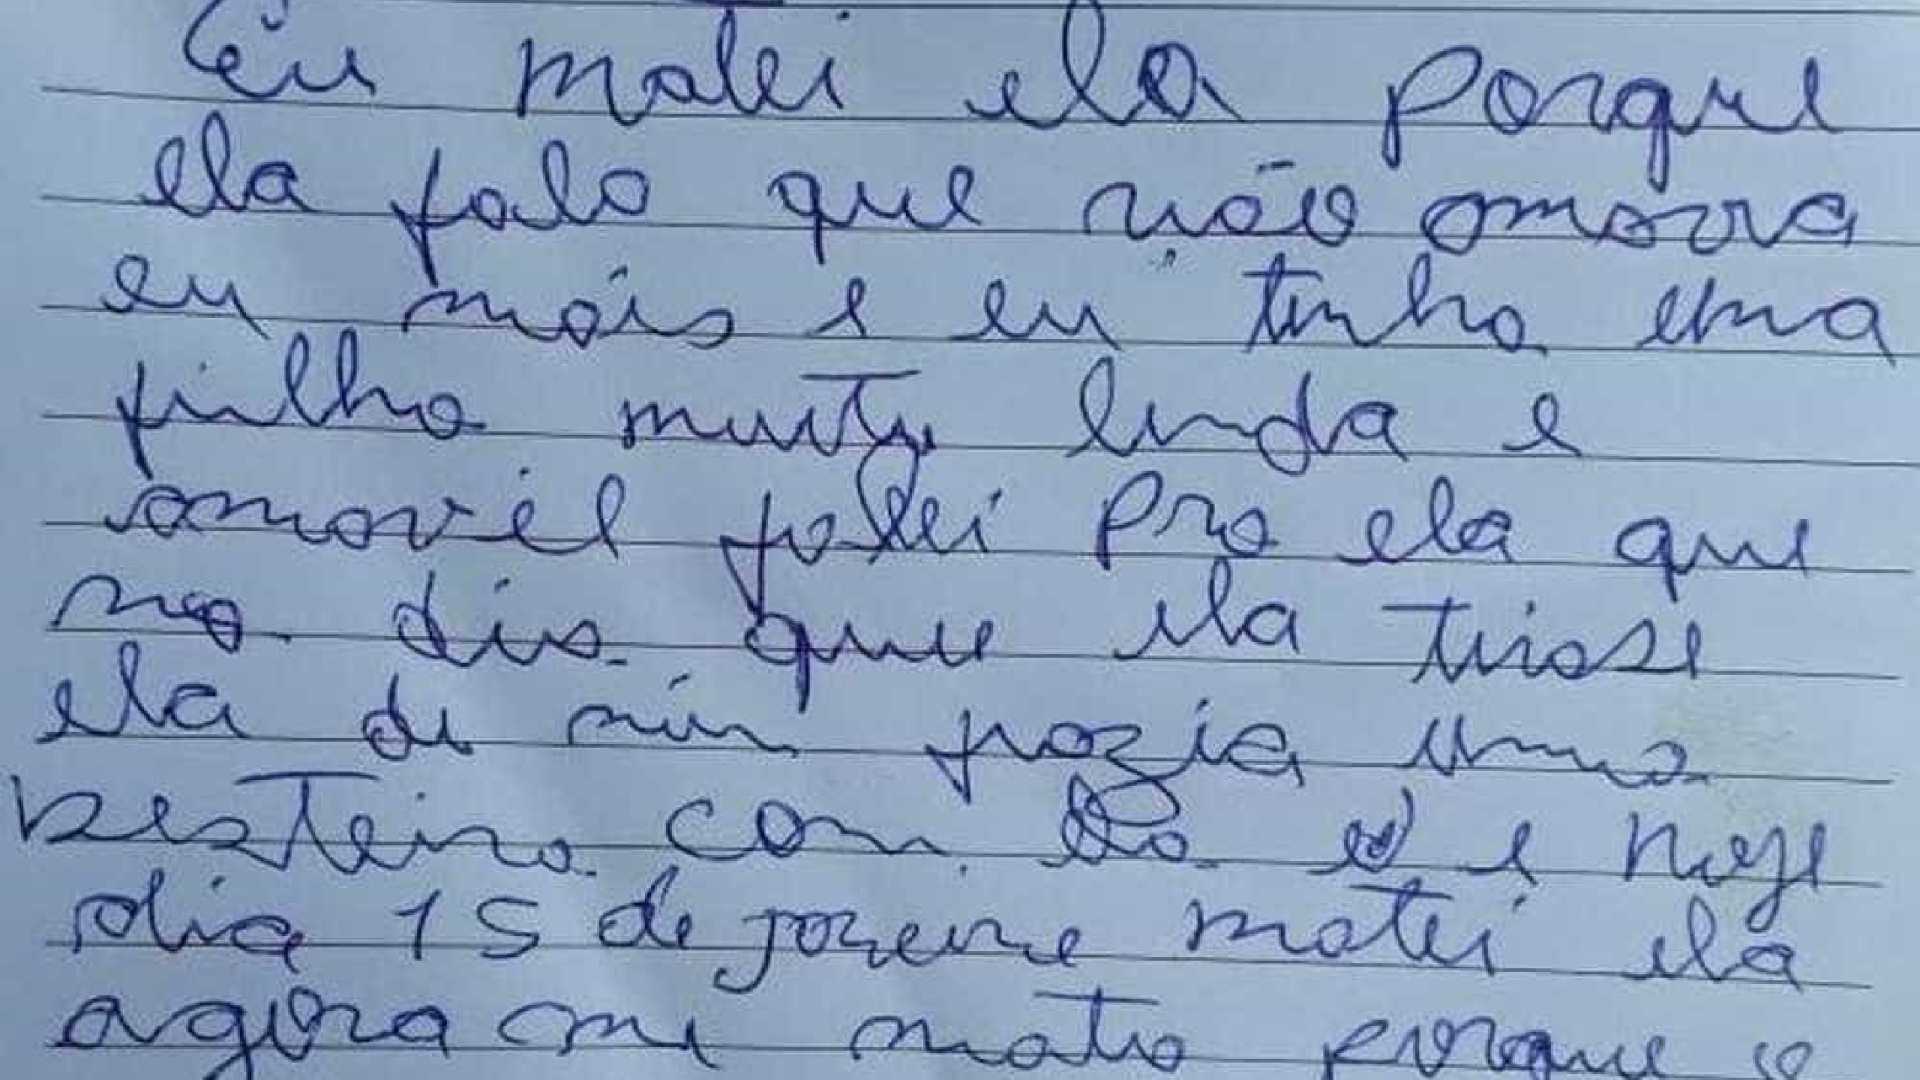 Eu matei ela porque
ela falo que não amava
eu mais e eu tinha uma
filha muito linda e
amavel falei pra ela que
no dia que ela tirase
ela de min fazia uma
besteira com ela e hoje
dia 15 de janeiro matei ela
agora me mato porque o